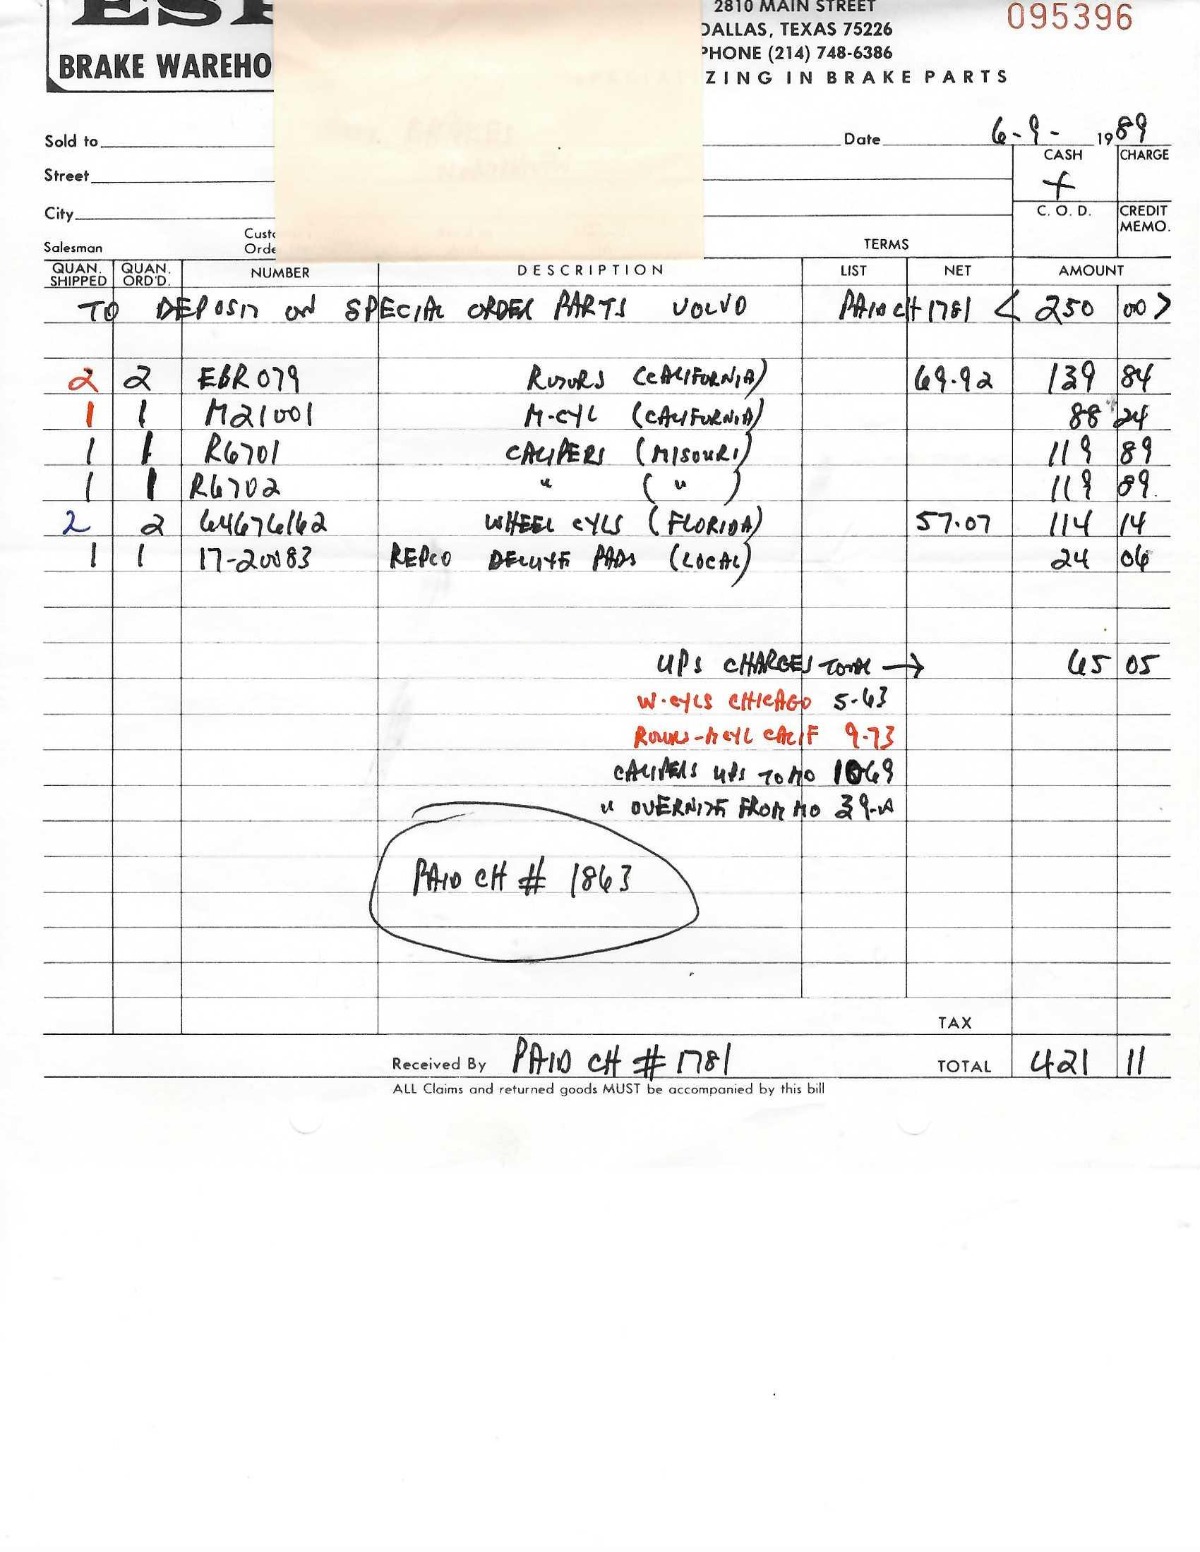 2810 MAIN STREET
DALLAS, TEXAS 75226
PHONE (214) 748-6386
ZING IN BRAKE PARTS
095396
BRAKE WAREHO
Sold to
Date 6-9- 1989
Street
CASH CHARGE
+
City
C. O. D. CREDIT MEMO.
Salesman
TERMS
QUAN. SHIPPED QUAN. ORD'D. NUMBER DESCRIPTION LIST NET AMOUNT
TO DEPOSIT ON SPECIAL ORDER PARTS VOLVO PAID CH 1781 < 250 00 >
2 2 EBR079 ROTORS (CALIFORNIA) 69.92 139 84
1 1 M21001 M-CYL (CALIFORNIA) 88 24
1 1 R6701 CALIPERS (MISOURI) 119 89
1 1 R6702 " ( " ) 119 89
2 2 64676162 WHEEL CYLS (FLORIDA) 57.07 114 14
1 1 17-20083 REPCO DELUXE PADS (LOCAL) 24 06
UPS CHARGES TOTAL → 65 05
W-CYLS CHICAGO 5-63
ROTORS-MCYL CALIF 9-73
CALIPERS UPS TO MO 1069
" OVERNITE FROM MO
PAID CH # 1863
TAX
Received By PAID CH # 1781 TOTAL 421 11
ALL Claims and returned goods MUST be accompanied by this bill